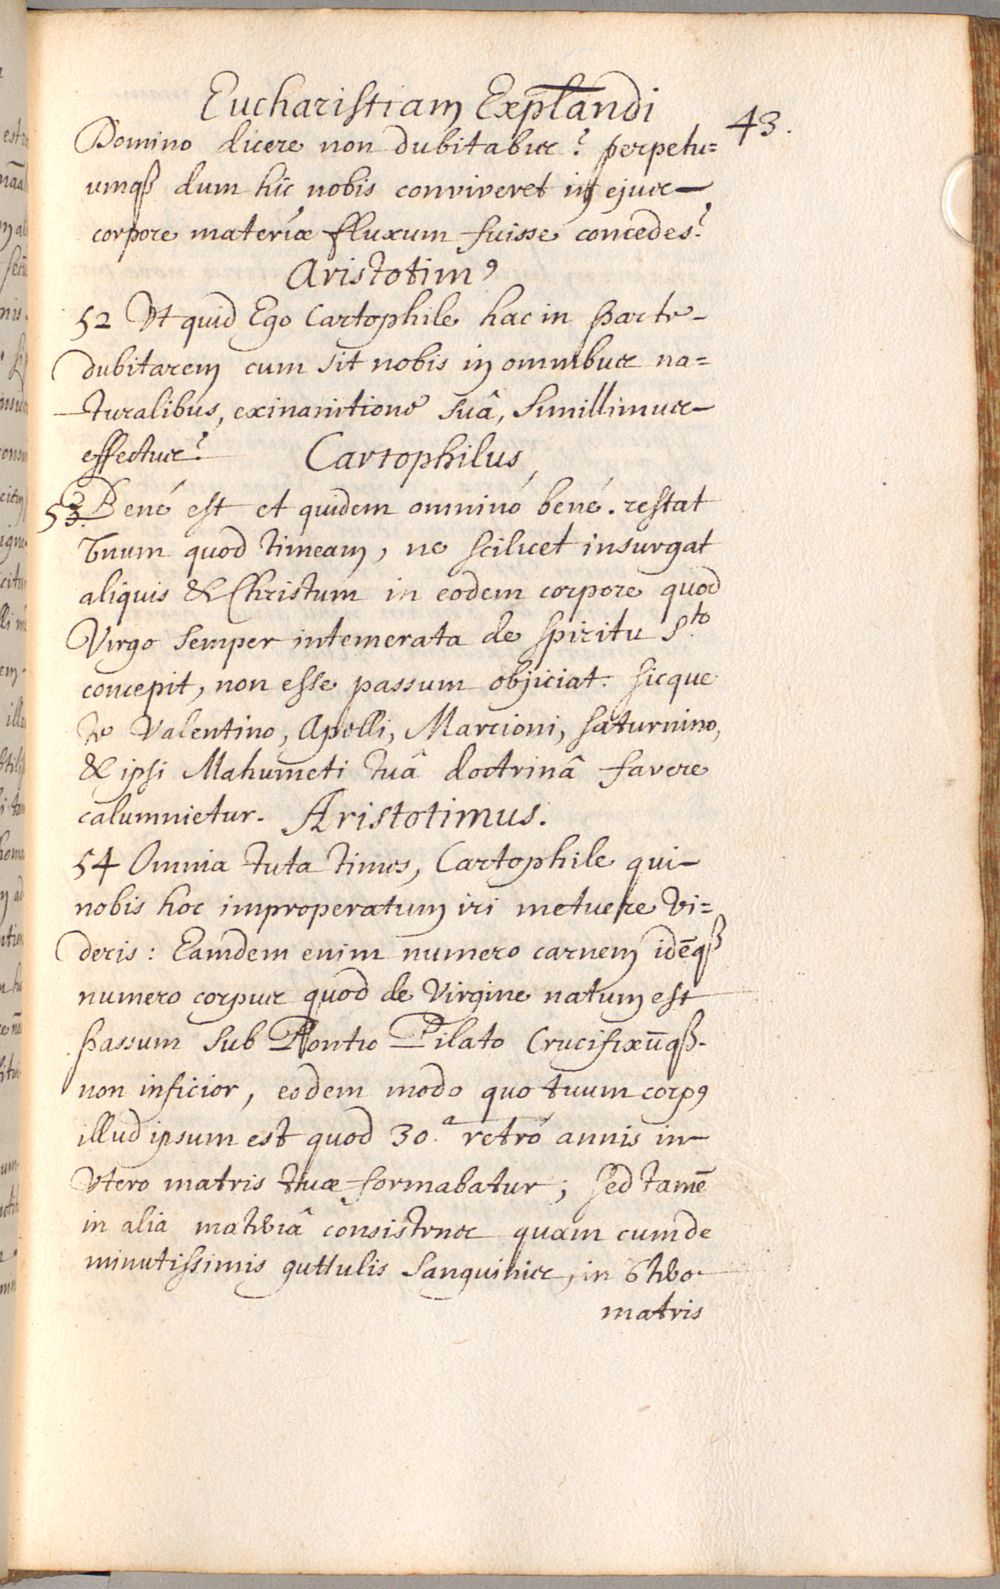 Eucharistiam Expl̄andi
43.
Domino dicere non dubitabus? perpetu=
umqȝ dum hic nobis conviveret in ejus
corpore materiæ fluxum fuisse concedes?
Aristotimꝰ
52 Ut quid Ego Cartophile hac in parte
dubitarem cum sit nobis in omnibus na=
turalibus, exinanitione suâ, simillimus
effectus?
Cartophilus,
53. Bené est et quidem omninó bené. restat
Unum quod timeam, ne scilicet insurgat
aliquis & Christum in eodem corpore quod
Virgo semper intemerata de spiritu S.to
concepit, non esse passum objiciat. sicque
te Valentino, Apelli, Marcioni, Saturnino,
& ipsi Mahumeti tuâ doctrinâ favere
calumnietur.
Aristotimus.
54 Omnia tuta times, Cartophile qui
nobis hoc improperatum iri metuere vi=
deris: Eamdem enim numero carnem idēqȝ
numero corpus quod de Virgine natum est
passum sub Pontio Pilato Crucifixūqȝ
non inficior, eodem modo quo tuum corpꝰ
illud ipsum est quod 30.a retró annis in
Utero matris tuæ formabatur; sed tamē
in alia materiâ consistens quam cum de
minutissimis guttulis sanguinis, in Utero
matris